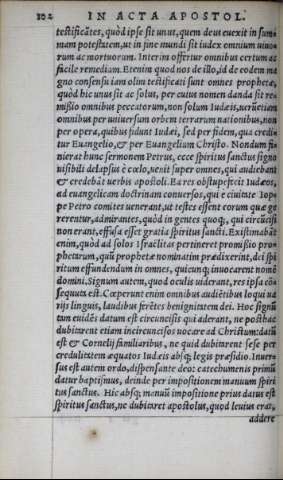 102 IN ACTA APOSTOL.
testificãtes, quòd ipse sit unus, quem deus euexit in sum-
mam potestatem, ut in fine mundi sit iudex omnium uiuo-
rum ac mortuorum. Interim offertur omnibus certum ac
facile remedium. Etenim quod nos de illo, id de eodem ma
gno consensu iam olim testificati sunt omnes prophetæ,
quòd hic unus sit ac solus, per cuius nomen danda sit re-
missio omnibus peccatorum, non solum Iudæis, uerũetiam
omnibus per uniuersum orbem terrarum nationibus, non
per opera, quibus fidunt Iudæi, sed per fidem, qua credi-
tur Euangelio, & per Euangelium Christo. Nondum fi-
nierat hunc sermonem Petrus, ecce spiritus sanctus signo
uisibili delapsus è cœlo, uenit super omnes, qui audiebant
& credebãt uerbis apostoli. Ea res obstupefecit Iudæos,
ad euangelicam doctrinam conuersos, qui è ciuitate Iop-
pe Petro comites uenerant, ut testes essent eorum quæ ge
rerentur, admirantes, quòd in gentes quoq;, qui circũcisi
non erant, effusa esset gratia spiritus sancti. Existimabãt
enim, quòd ad solos Israëlitas pertineret promissio pro-
phetarum, quũ prophetæ nominatim prædixerint, dei spi
ritum effundendum in omnes, quicunq; inuocarent nomẽ
domini. Signum autem, quod oculis uiderant, res ipsa cõ-
sequuta est. Cœperunt enim omnibus audiẽtibus loqui ua
rijs linguis, laudibus ferẽtes benignitatem dei. Hoc signũ
tam euidẽs datum est circuncisis qui aderant, ne posthac
dubitarent etiam incircuncisos uocare ad Christum: datũ
est & Cornelij familiaribus, ne quid dubitarent sese per
credulitatem æquatos Iudæis absq; legis præsidio. Inuer-
sus est autem ordo, dispensante deo: catechumenis primũ
datur baptismus, deinde per impositionem manuum spiri
tus sanctus. Hic absq; manuũ impositione prius datus est
spiritus sanctus, ne dubitaret apostolus, quod leuius erat,
addere